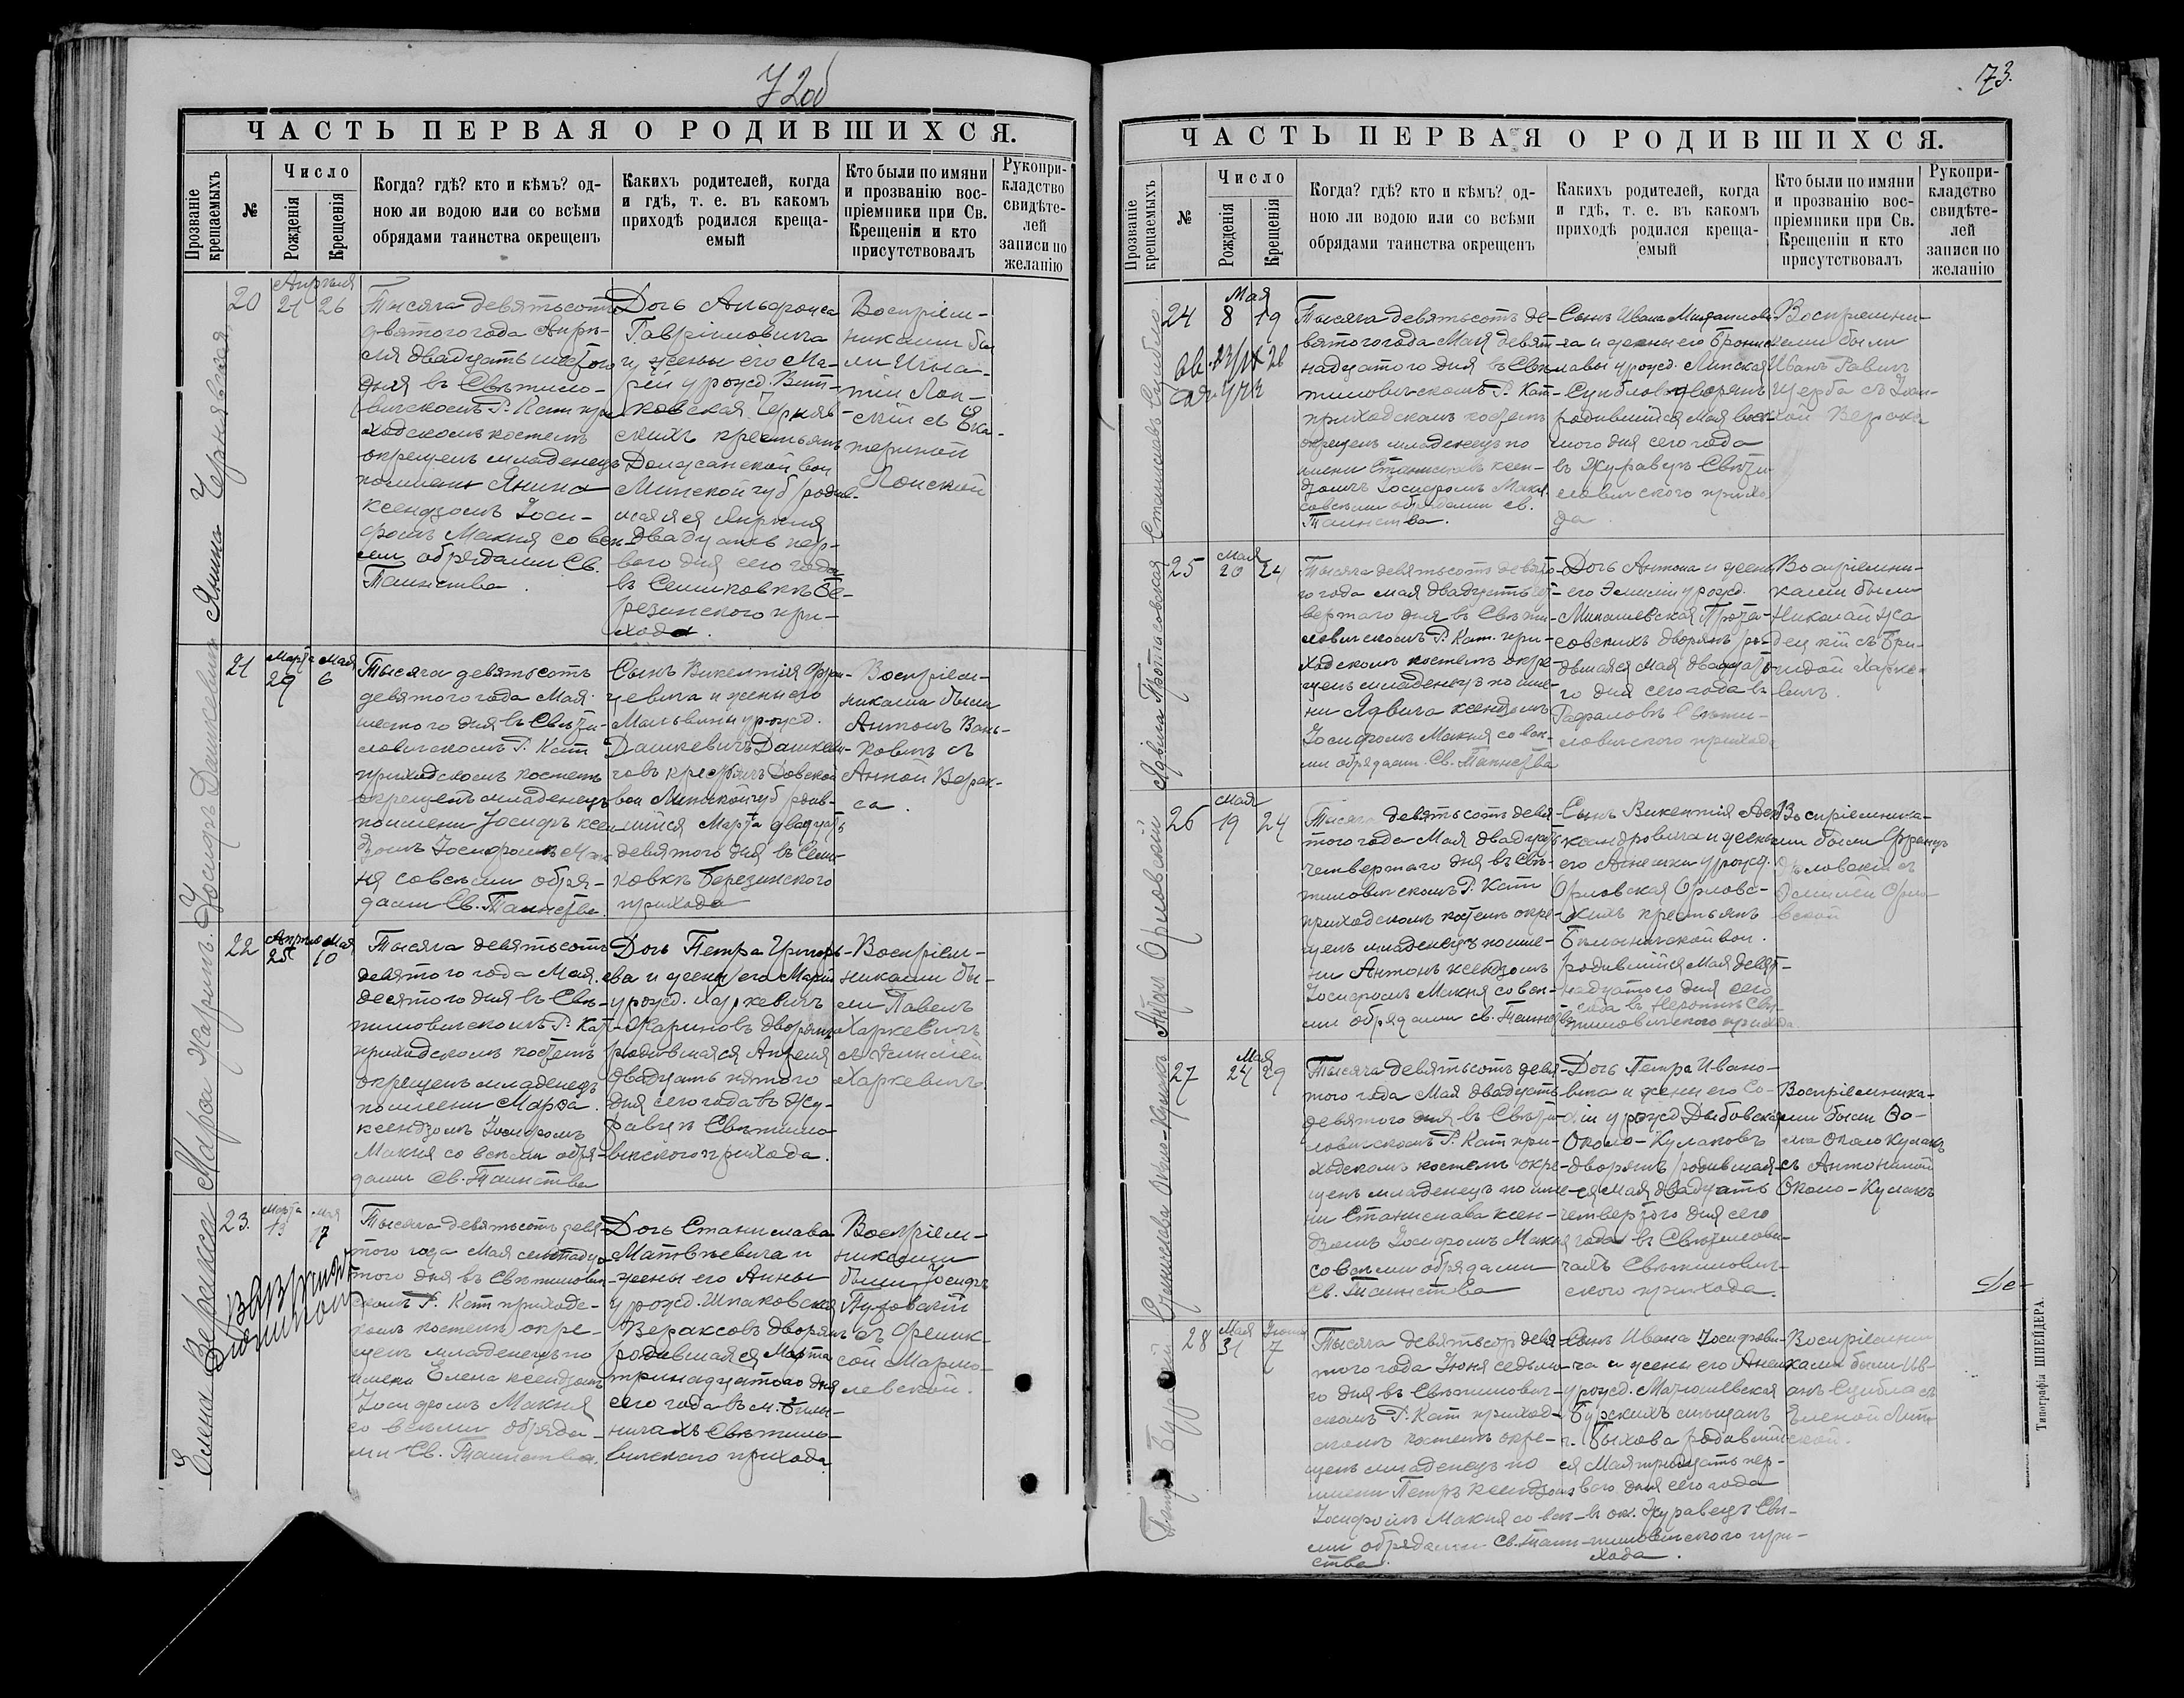 72об
ЧАСТЬ ПЕРВАЯ О РОДИВШИХСЯ.
Прозваніе крещаемыхъ
№
Число
Рожденія
Крещенія
Когда? гдѣ? кто и кѣмъ? од-
ною ли водою или со всѣми
обрядами таинства окрещенъ
Какихъ родителей, когда
и гдѣ, т. е. въ какомъ
приходѣ родился креща-
емый
Кто были по имяни
и прозванію вос-
пріемники при Св.
Крещеніи и кто
присутствовалъ
Рукопри-
кладство
свидѣте-
лей
записи по
желанію
Янина Чернявская
20
Апрѣля
21 26
Тысяча девятьсотъ
девятого года Апрѣ-
ля двадцать шестого
дня въ Свѣтило-
вичскомъ Р. Кат. при
ходскомъ костелѣ
окрещенъ младенецъ
по имени Янина
ксендзомъ Іоси-
фомъ Макня со всѣ-
ми обрядами Св.
Таинства.
Дочь Альфонса
Гавріиловича
и жены его Ма-
ріи урожд. Вит-
ковская Черняв-
скихъ крестьянъ
вол
Минской губ родив-
шаяся Апрѣля
двадцать пер-
вого дня сего года
въ Сешковкѣ Бе-
резинского при-
хода.
Воспріем-
никами бы
ли Игна-
тій Лон-
скій съ Ека-
териной
Лонской
Іосифъ Дашкевичъ
21
Марта Мая
29 6
Тысяча девятьсотъ
девятого года Мая
шестого дня въ Свѣти-
ловичскомъ Р. Кат
приходскомъ костелѣ
окрещенъ младенецъ
по имени Іосифъ ксен
дзомъ Іосифомъ Мак
ня со всѣми обря-
дами Св. Таинства.
Сынъ Викентія Фран-
цевича и жены его
Мальвины урожд.
Дашкевичъ Дашкеви-
човъ крестьянъ Довской
вол Минской губ родив-
шійся Марта двадцать
девятого дня въ Сеш-
ковкѣ Березинского
прихода
Воспріем-
никами были
Антонъ Вань-
ковичъ съ
Анной Верак-
са.
Марѳа Жаринъ.
22
Апрѣля Мая
25 10
Тысяча девятьсотъ
девятого года Мая
десятого дня въ Свѣ-
тиловичскомъ Р. Кат
приходскомъ костелѣ
окрещенъ младенецъ
по имени Марѳа
ксендзомъ Іосифомъ
Макня со всѣми обря-
дами Св. Таинства
Дочь Петра Григорь-
ева и жены его Маріи
урожд. Харкевичъ
Жариновъ дворянъ
родившаяся Апрѣля
двадцать пятого
дня сего года въ Жу-
равцѣ Свѣтило-
вичского прихода.
Воспріем-
никами бы-
ли Павелъ
Харкевичъ
съ Эмиліей
Харкевичъ.
Елена Вераксa
23.
Марта Мая
13 17
Тысяча девятьсотъ девя
того года Мая семнадца
того дня въ Свѣтилович
скомъ Р. Кат приходс-
комъ костелѣ окре-
щенъ младенецъ по
имени Елена ксендзомъ
Іосифомъ Макня
со всѣми обряда-
ми Св. Таинства.
Дочь Станислава
Матвѣевича и
жены его Анны
урожд. Шпаковская
Вераксовъ дворянъ
родившаяся Марта
тринадцатого дня
сего года въ м. Бѣлы-
ничахъ Свѣтило-
вичского прихода
Воспріем-
никами
были Іосифъ
съ Феликс-
сой Марцо-
левской.
73.
ЧАСТЬ ПЕРВАЯ О РОДИВШИХСЯ.
Прозваніе крещаемыхъ
№
Число
Рожденія
Крещенія
Когда? гдѣ? кто и кѣмъ? од-
ною ли водою или со всѣми
обрядами таинства окрещенъ
Какихъ родителей, когда
и гдѣ, т. е. въ какомъ
приходѣ родился креща-
емый
Кто были по имяни
и прозванію вос-
пріемники при Св.
Крещеніи и кто
присутствовалъ
Рукопри-
кладство
свидѣте-
лей
записи по
желанію
Станиславъ Сцибло.
24
Мая
8 19
Тысяча девятьсотъ де-
вятого года Мая девят-
надцатого дня въ Свѣ-
тиловичскомъ Р. Кат.
приходскомъ костелѣ
окрещенъ младенецъ по
имени Станиславъ ксен-
дзомъ Іосифомъ Макня
со всѣми обрядами св.
Таинства.
Сынъ Ивана Михайлови-
ча и жены его Бронис-
лавы урожд. Липская
Сцибловъ дворянъ
родившійся Мая вось-
мого дня сего года
въ Журавцѣ Свѣти-
ловичского прихо
да
Воспріемни-
ками были
Иванъ
Щерба съ
Ядвига Протасовская
25
Мая
20 24
Тысяча девятьсотъ девято-
го года мая двадцать чет-
вертаго дня въ Свѣти-
ловичскомъ Р. Кат. при-
ходскомъ костелѣ окре-
щенъ младенецъ по име-
ни Ядвига ксендзомъ
Іосифомъ Макня со всѣ-
ми обрядами Св. Таинства
Дочь Антона и жены
его Эмиліи урожд.
Микошевская Прота-
совскихъ дворянъ ро-
дившаяся Мая двадцато-
го дня сего года въ
Рафаловѣ Свѣти-
ловичского прихода
Воспріемни-
ками были
Николай
съ Бри-
гидой Харке-
вичъ.
Антонъ Орловскій
26
Мая
19 24
Тысяча девятьсотъ девя-
того года Мая двадцать
четвертаго дня въ Свѣ-
тиловичскомъ Р. Кат
приходскомъ костелѣ окре-
щенъ младенецъ по име-
ни Антонъ ксендзомъ
Іосифомъ Макня со всѣ-
ми обрядами св. Таинства
Сынъ Викентія Алек
сандровича и жены
его Агнешки урожд.
Орловская Орловс-
кихъ крестьянъ
Бѣлыничской вол.
родившійся Мая девят-
надцатого дня сего
года въ Нероплѣ Свѣ-
тиловичского прихода
Воспріемника-
ми были Францъ
съ
Эмиліей Орло-
вской
Станислава Около-Кулакъ
27
Мая
24 29
Тысяча девятьсотъ девя-
того года Мая двадцать
девятого дня въ Свѣти-
ловичскомъ Р. Кат при-
ходскомъ костелѣ окре-
щенъ младенецъ по име-
ни Станислава ксен-
дзомъ Іосифомъ Макня
со всѣми обрядами
Св. Таинства
Дочь Петра Ивано-
вича и жены его Со-
фіи урожд Дыбовская
Около-Кулаковъ
дворянъ родившая-
ся Мая двадцать
четвертого дня сего
года въ Свѣтилови-
чахъ Свѣтилович-
ского прихода.
Воспріемника-
ми были
Около Кулакъ
съ Антониной
Около-Кулакъ
Де-
Петръ Бурскій
28
Мая Іюня
31 7
Тысяча девятьсотъ девя-
того года Іюня седьмо-
го дня въ Свѣтилович-
скомъ Р. Кат приход-
скомъ костелѣ окре-
щенъ младенецъ по
имени Петръ ксендзомъ
Іосифомъ Макня со всѣ-
ми обрядами Св. Таин-
ства.
Сынъ Ивана Іосифови-
ча и жены его Анны
урожд. Матюшевская
Бурскихъ мѣщанъ
г. Быхова родившій
ся Мая тридцать пер-
вого дня сего года
въ ок. Журавецъ Свѣ-
тиловичского при-
хода.
Воспріемни
ками были Ив-
анъ Сцибла съ
Еленой Лип-
ской.
Типографія ШНЕЙДЕРА.